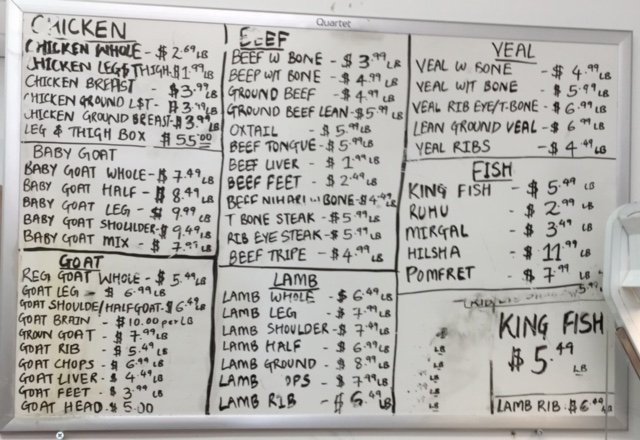 Quartet
CHICKEN
CHICKEN WHOLE - $ 2.69 LB
CHICKEN LEG & THIGH - $1.99 LB
CHICKEN BREAST - $3.99 LB
CHICKEN GROUND L&T - $3.99 LB
CHICKEN GROUND BREAST - $3.99 LB
LEG & THIGH BOX $55.00
BABY GOAT
BABY GOAT WHOLE - $7.49 LB
BABY GOAT HALF - $ 8.49 LB
BABY GOAT LEG - $ 9.99 LB
BABY GOAT SHOULDER - $ 9.49 LB
BABY GOAT MIX - $ 7.99 LB
GOAT
REG GOAT WHOLE - $ 5.49 LB
GOAT LEG - $ 6.99 LB
GOAT SHOULDE/HALFGOAT - $ 6.49 LB
GOAT BRAIN - $10.00 per LB
GROUN GOAT - $ 7.99 LB
GOAT RIB - $ 5.49 LB
GOAT CHOPS - $ 6.99 LB
GOAT LIVER - $ 4.49 LB
GOAT FEET - $ 3.99 LB
GOAT HEAD - $ 5.00
BEEF
BEEF W BONE - $ 3.99 LB
BEEP W/T BONE - $ 4.99 LB
GROUND BEEF - $ 4.99 LB
GROUND BEEF LEAN - $5.99 LB
OXTAIL - $ 5.99 LB
BEEF TONGUE - $ 5.99 LB
BEEF LIVER - $ 1.99 LB
BEEF FEET - $ 2.49 LB
BEEF NIHARI W BONE - $4.49 LB
T BONE STEAK - $ 5.99 LB
RIB EYE STEAK - $ 5.99 LB
BEEF TRIPE - $ 4.99 LB
LAMB
LAMB WHOLE - $ 6.49 LB
LAMB LEG - $ 7.99 LB
LAMB SHOULDER - $ 7.49 LB
LAMB HALF - $ 6.99 LB
LAMB GROUND - $ 8.99 LB
LAMB OPS - $ 7.99 LB
LAMB RIB - $ 6.49 LB
VEAL
VEAL W. BONE - $ 4.99 LB
VEAL W/T BONE - $ 5.99 LB
VEAL RIB EYE/T-BONE - $ 6.99 LB
LEAN GROUND VEAL - $ 6.99 LB
VEAL RIBS - $ 4.49 LB
FISH
KING FISH - $ 5.49 LB
RUHU - $ 2.99 LB
MIRGAL - $ 3.49 LB
HILSHA - $ 11.99 LB
POMFRET - $ 7.99 LB
5.99
LB
LB
LB
LB
LB
KING FISH
$ 5.49
LB
LAMB RIB - $6.00 LB